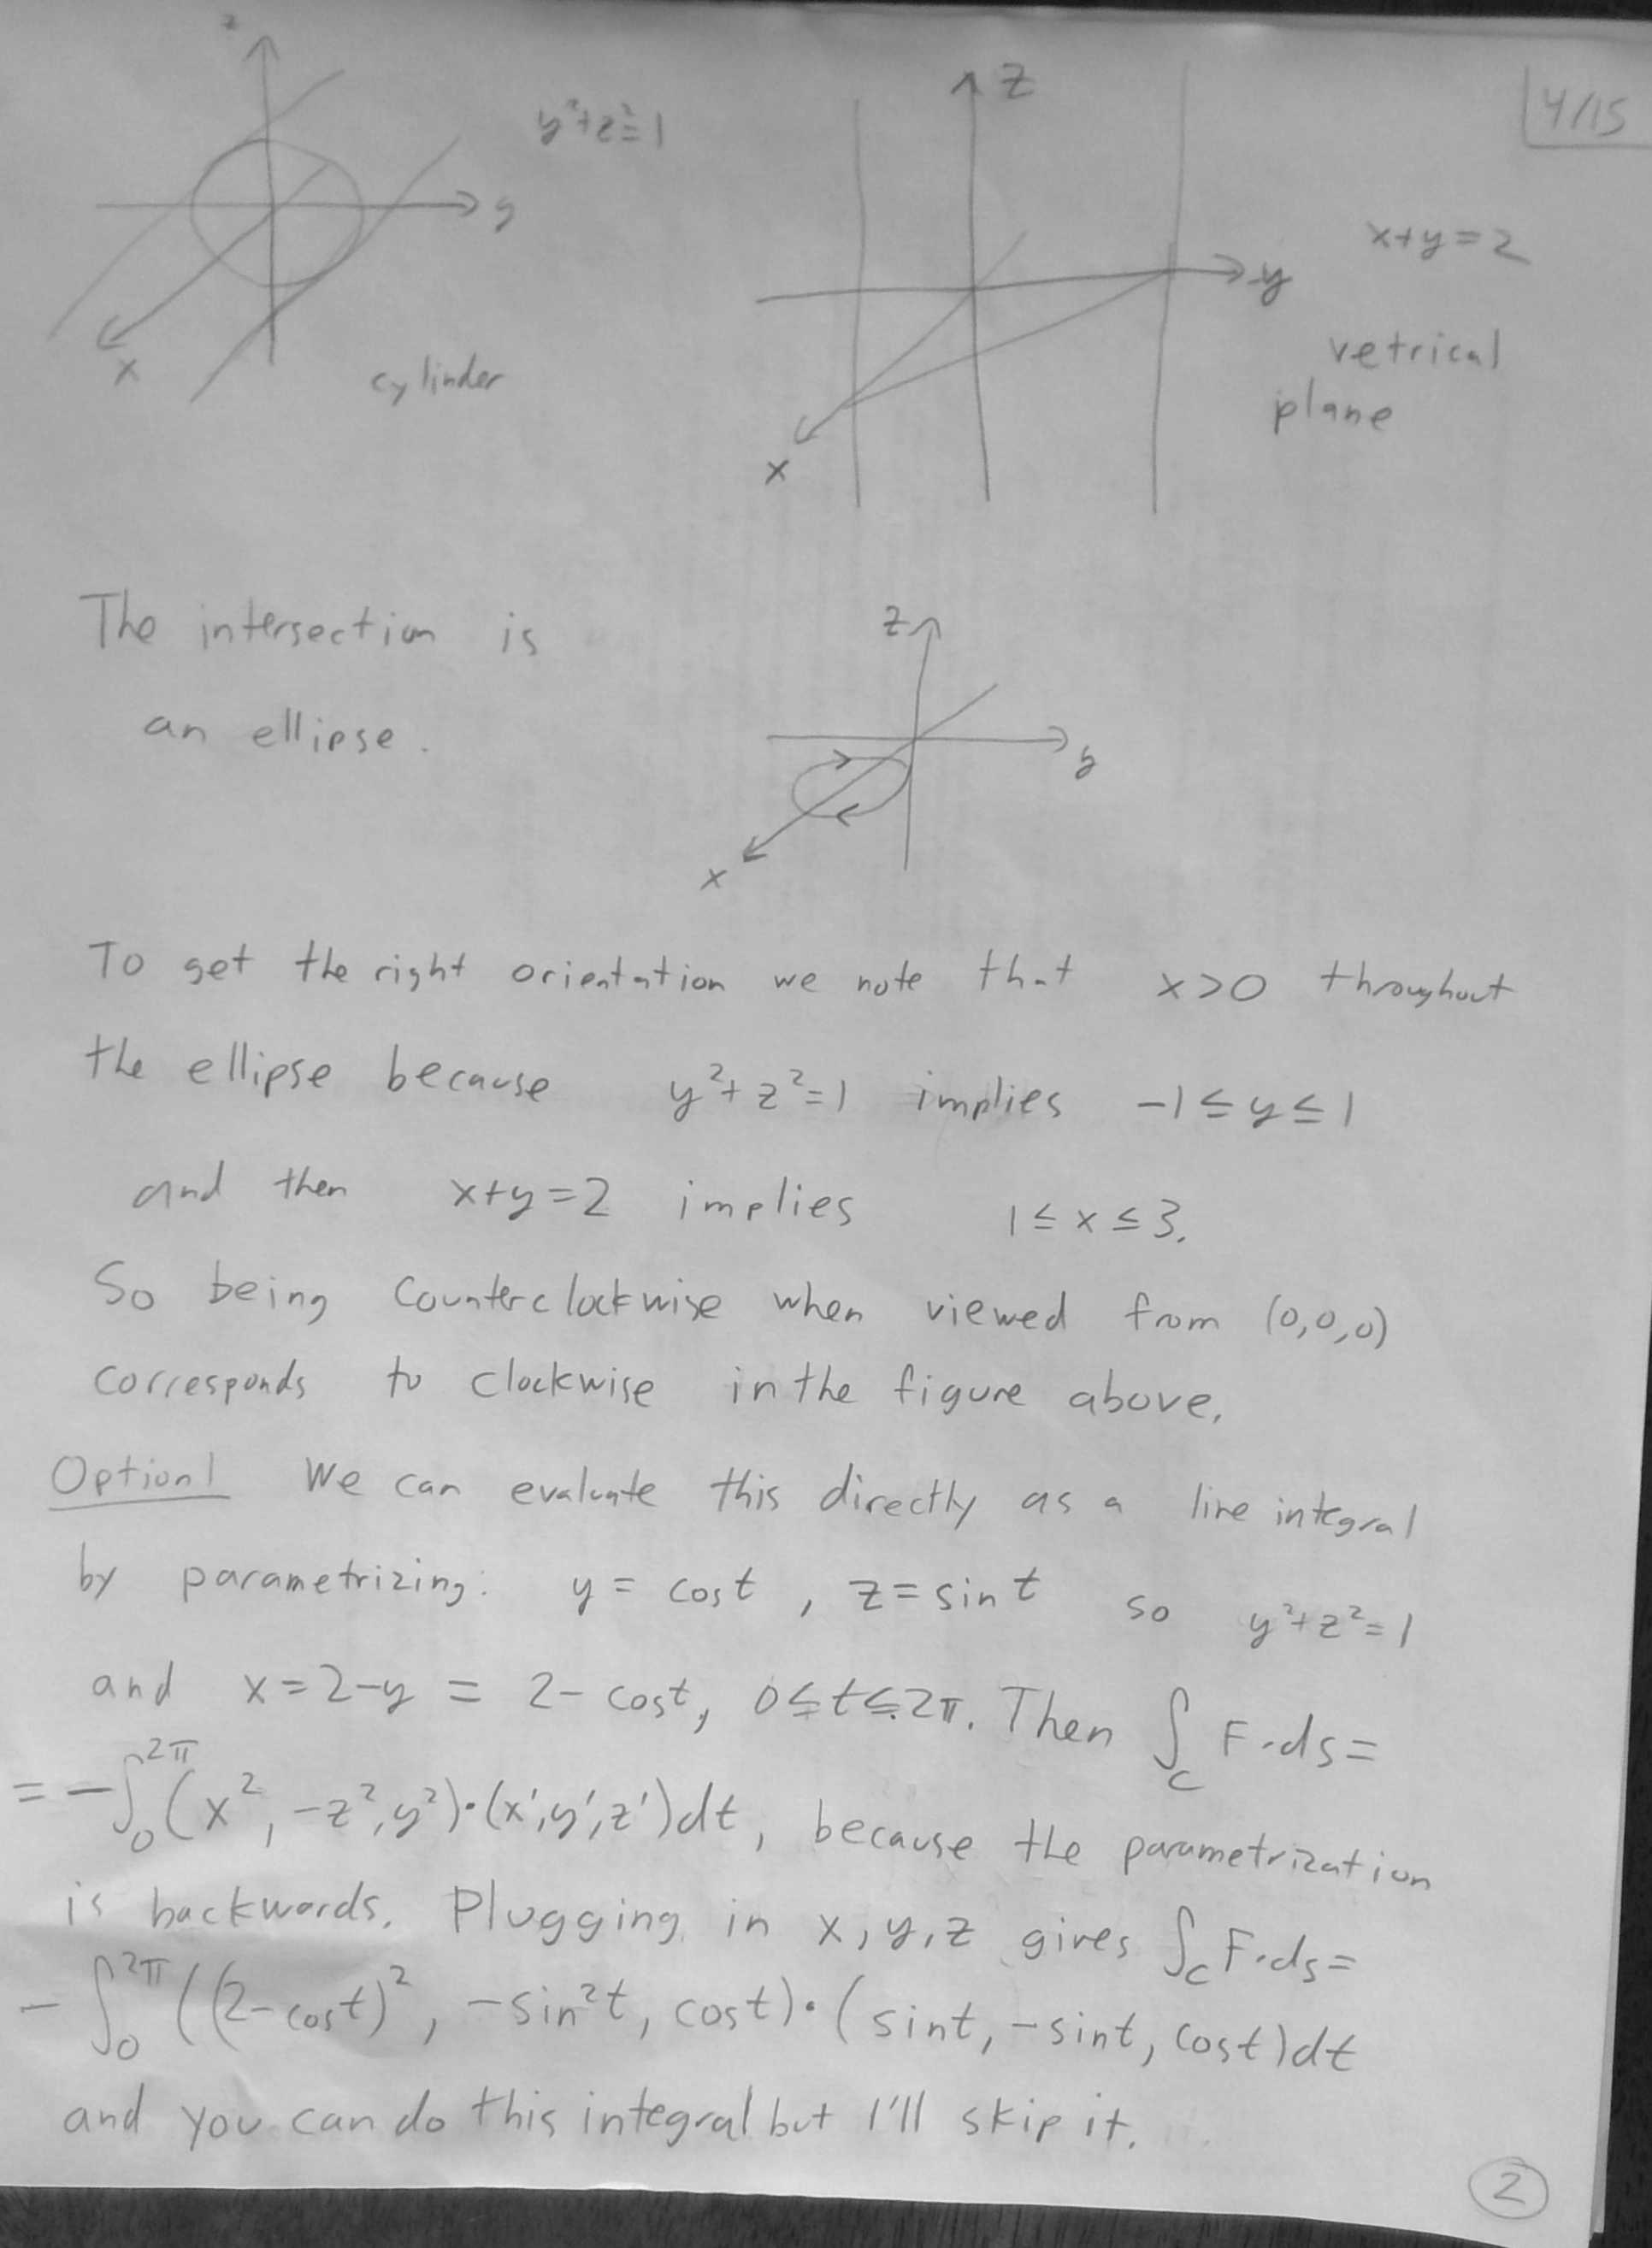 z
y²+z²=1
y
x
cylinder
4/15
z
y
x
x+y=2
vetrical
plane
The intersection is
an ellipse.
z
y
x
To get the right orientation we note that x>0 throughout
the ellipse because y²+z²=1 implies -1≤y≤1
and then x+y=2 implies 1≤x≤3.
So being counterclockwise when viewed from (0,0,0)
corresponds to clockwise in the figure above.
Option 1 We can evaluate this directly as a line integral
by parametrizing: y = cost, z = sint so y²+z²=1
and x=2-y = 2-cost, 0≤t≤2π. Then ∫_C F·ds=
= -∫₀^2π (x², -z², y²)·(x',y',z')dt, because the parametrization
is backwards. Plugging in x,y,z gives ∫_C F·ds=
-∫₀^2π ((2-cost)², -sin²t, cost)·(sint, -sint, cost)dt
and you can do this integral but I'll skip it.
2